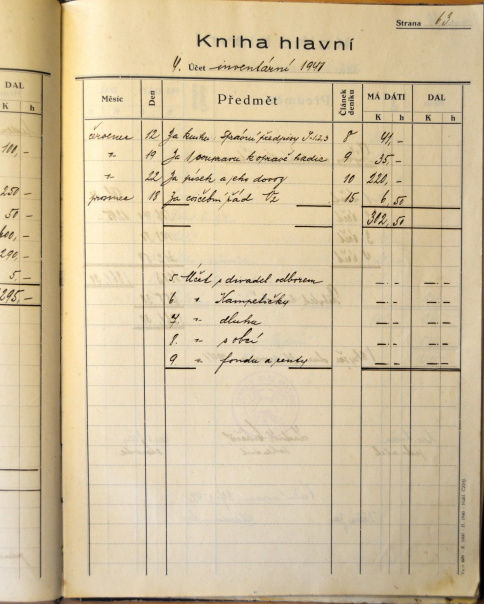 DAL
K h
100,-
250 -
50 -
290,-
5 -
295,-
Strana 63
Kniha hlavní
4. Účet inventární 1941
Měsíc Den Předmět Článek deníku MÁ DÁTI DAL
K h K h
července 12 Za knihu Správní předpisy I-1.2.3 8 41,-
" 19 Za 1 soupravu k opravě hadic 9 35,-
" 22 Za písek a jeho dovoz 10 220,-
prosince 18 Za cvičební řád 15 6,50
302,50
5. Účet s divadel. odborem — . - — . -
6. " Kampeličky — . - — . -
7. " dluhu — . - — . -
8. " s obcí — . - — . -
9 " fondu a renty — . - — . -